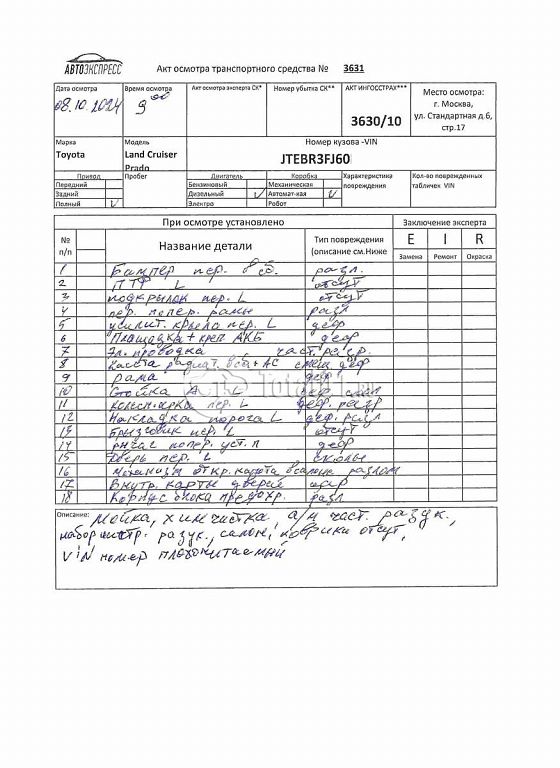 АВТОЭКСПРЕСС
Акт осмотра транспортного средства № 3631
Дата осмотра Время осмотра Акт осмотра эксперта СК* Номер убытка СК** АКТ ИНГОССТРАХ*** Место осмотра:
08.10.2024 9 00 3630/10 г. Москва,
ул. Стандартная д.6,
стр.17
Марка Модель Номер кузова -VIN
Toyota Land Cruiser Prado JTEBR3FJ60
Привод Пробег Двигатель Коробка Характеристика повреждения Кол-во поврежденных табличек VIN
Передний Бензиновый Механическая
Задний Дизельный V Автомат-кая V
Полный V Электро Робот
При осмотре установлено Заключение эксперта
№ п/п Название детали Тип повреждения (описание см.Ниже E I R
Замена Ремонт Окраска
1 Бампер пер. в сб. разл.
2 ПТФ L отсут
3 подкрылок пер. L отсут
4 пер. попер. рамы разл
5 усилит. крыла пер. L деф
6 Площадка + креп АКБ деф
7 Эл. проводка част. разр.
8 Кассета радиат. ДВС + АС смещ деф
9 рама деф
10 Стойка А L
11 L деф. разр
12 Накладка порога L деф. разл
13 Брызговик пер. L отсут
14 рычаг попер. уст. п деф
15 Дверь пер. L сколы
16 Механизм откр. капота в салоне разлом
17 Внутр. карты дверей
18 Корпус блока предохр. разл
Описание: Мойка, химчистка, а/м част. разук.,
набор инстр. разук., салон, коврики отсут,
VIN номер плохочитаемый